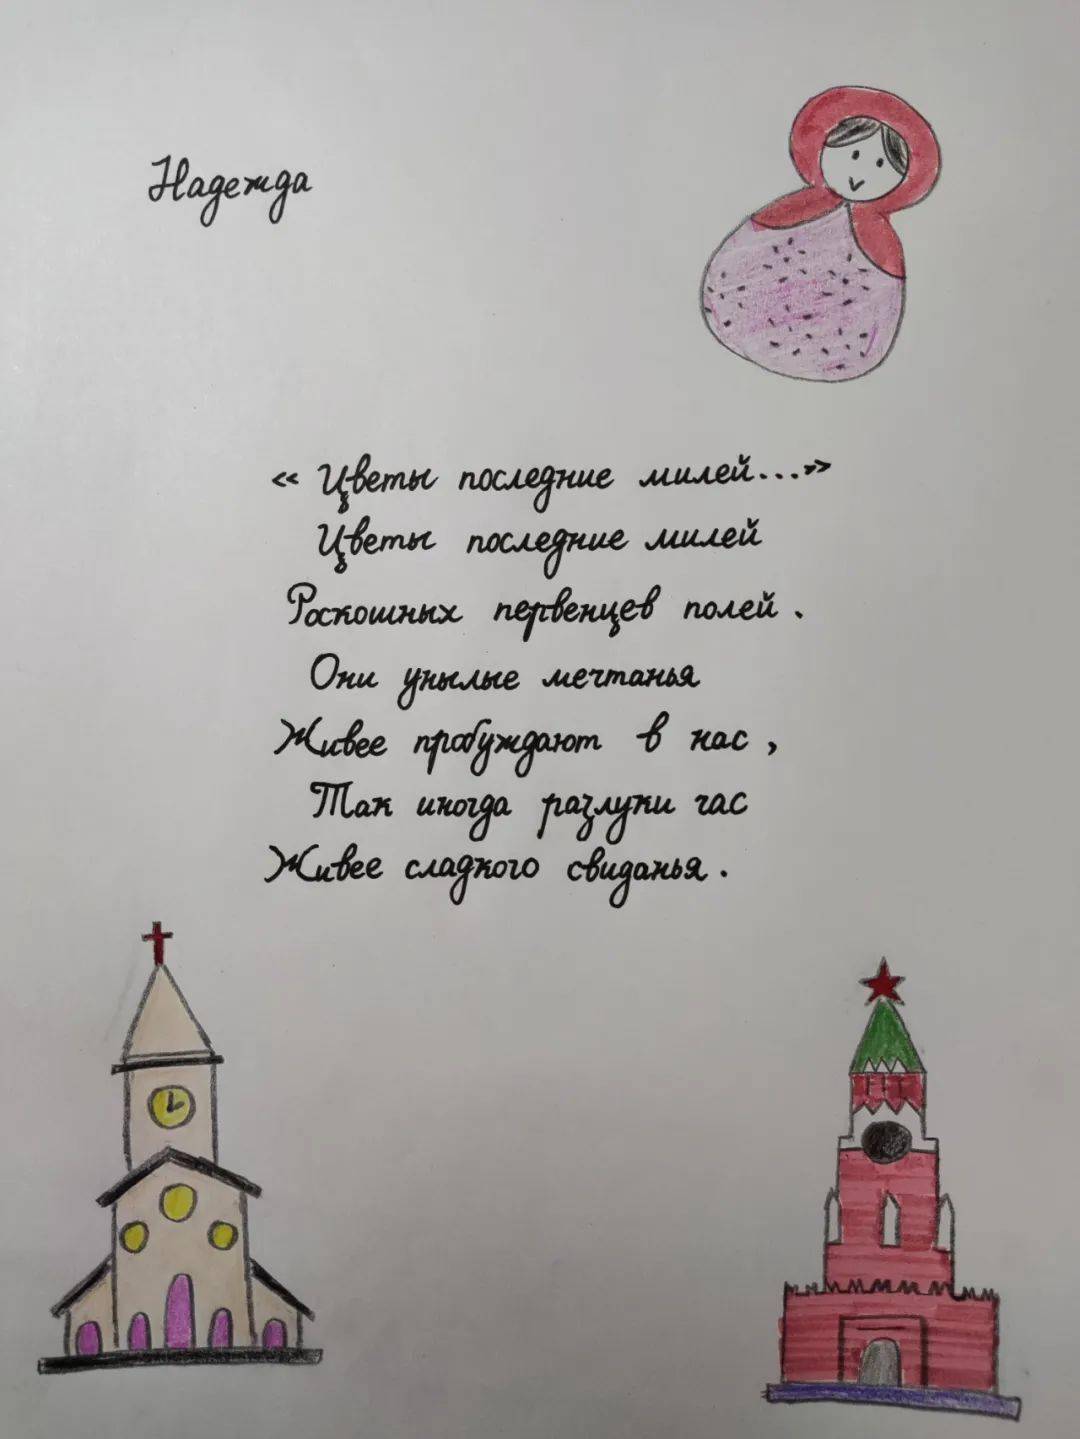 Надежда
« Цветы последние милей...»
Цветы последние милей
Роскошных первенцев полей .
Они унылые мечтанья
Живее пробуждают в нас ,
Так иногда разлуки час
Живее сладкого свиданья .